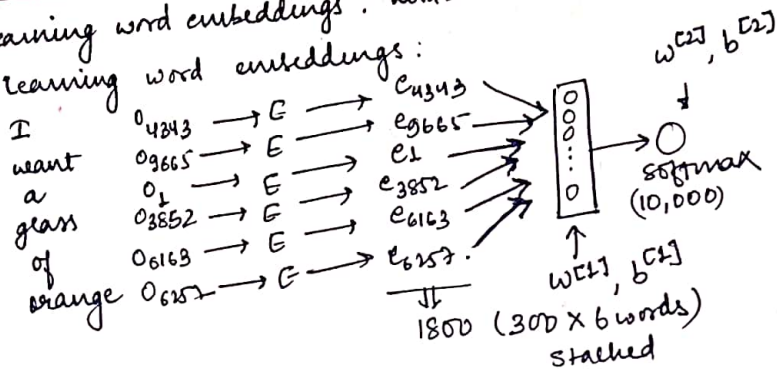 earning word embeddings.
Learning word embeddings:
I O4343 → E → e4343
want O9665 → E → e9665
a O1 → E → e1
glass O3852 → E → e3852
of O6163 → E → e6163
orange O6257 → E → e6257.
1800 (300 × 6 words)
stacked
w[1], b[1]
w[2], b[2]
softmax
(10,000)